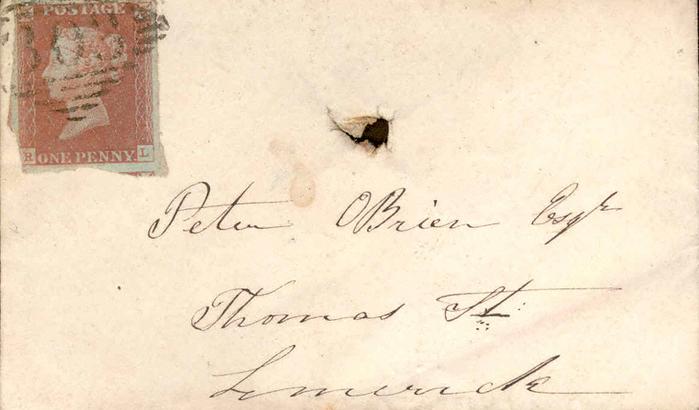 POSTAGE
R ONE PENNY L
Peter OBrien Esqr
Thomas St.
Limerick